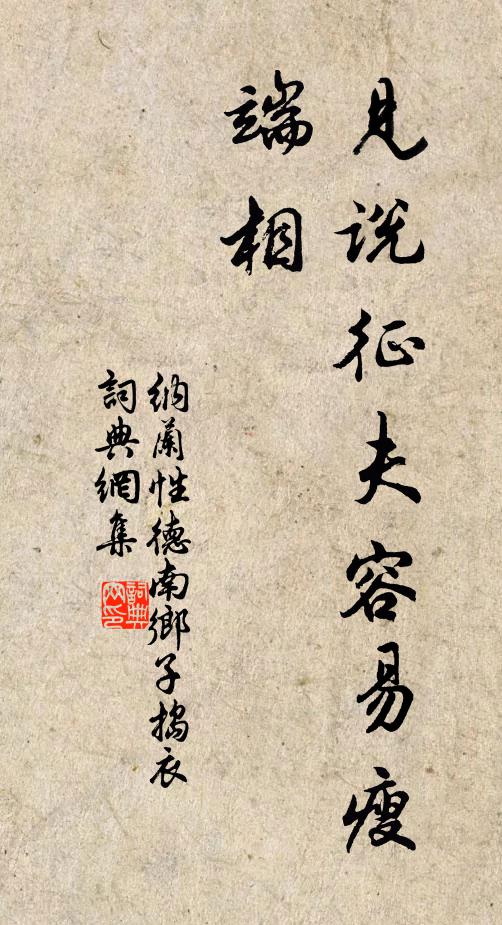 見说征夫容易瘦
端相
纳蘭性德南鄉子搗衣
詞典網集
詞典